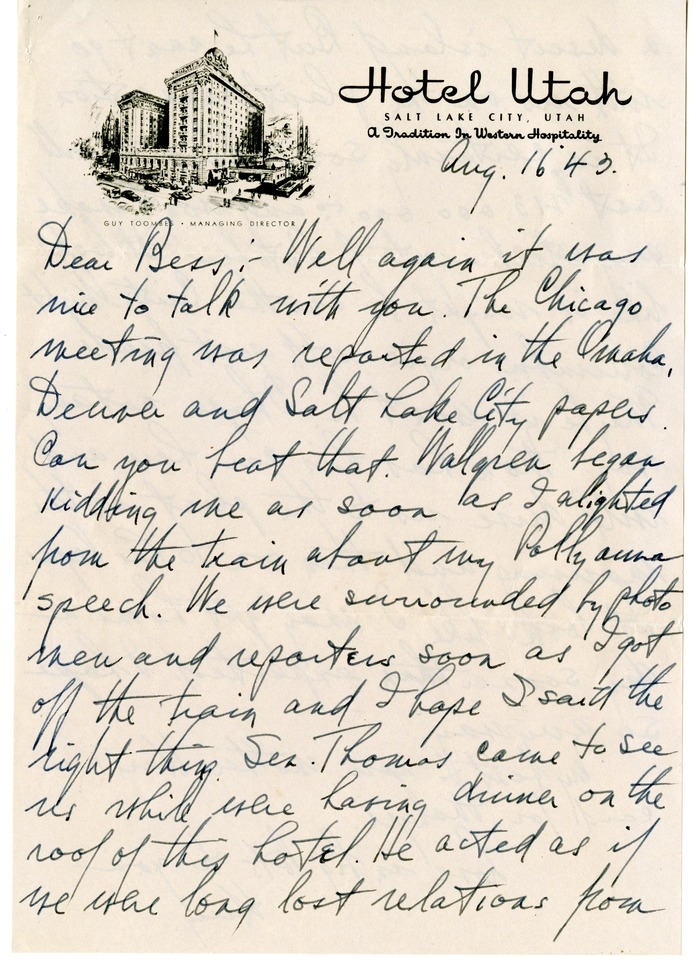 Hotel Utah
SALT LAKE CITY, UTAH
A Tradition In Western Hospitality
Aug. 16 '43.
GUY TOOMBES • MANAGING DIRECTOR
Dear Bess:- Well again it was
nice to talk with you. The Chicago
meeting was reported in the Omaha,
Denver and Salt Lake City papers.
Can you beat that. Wallgren began
kidding me as soon as I alighted
from the train about my Pollyanna
speech. We were surrounded by photo
men and reporters soon as I got
off the train and I hope I said the
right thing. Sen. Thomas came to see
us while were having dinner on the
roof of this hotel. He acted as if
we were long lost relations from